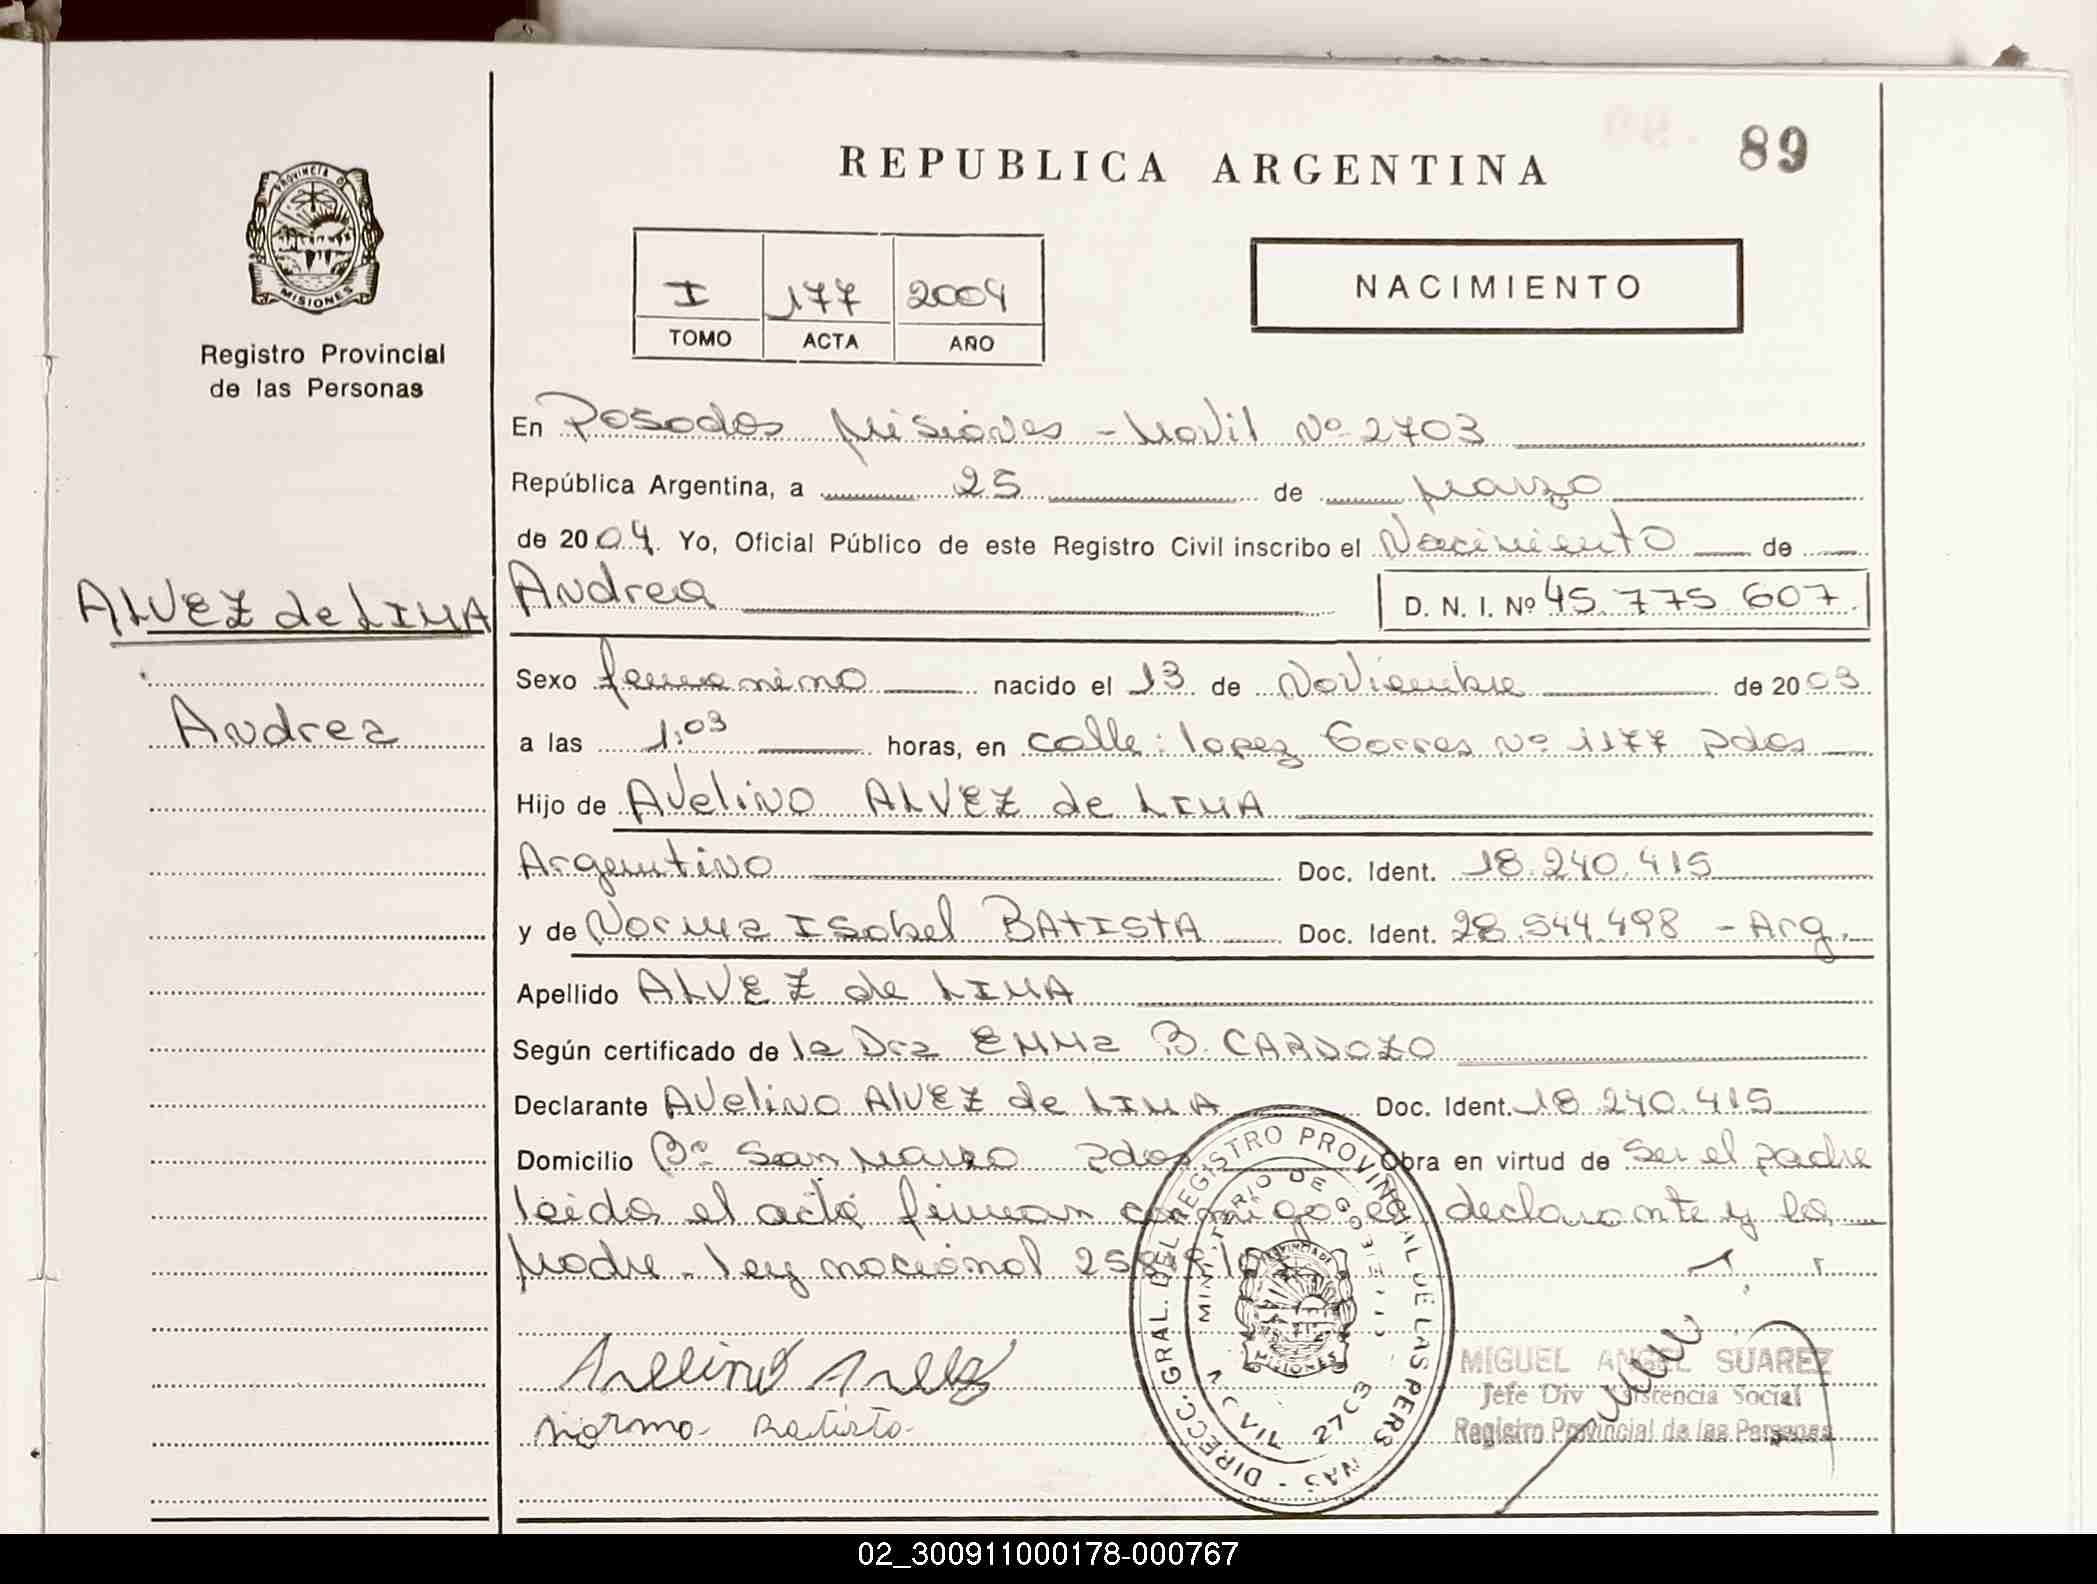 89
REPUBLICA ARGENTINA
PROVINCIA DE
MISIONES
Registro Provincial
de las Personas
I 177 2004
TOMO ACTA AÑO
NACIMIENTO
En Posadas Misiones - Movil Nº 2703
República Argentina, a 25 de Marzo
de 2004. Yo, Oficial Público de este Registro Civil inscribo el Nacimiento de
ALVEZ de LIMA
Andrea
D. N. I. Nº 45.775.607
Sexo femenino nacido el 13 de Noviembre de 2003
Andrea
a las 1:03 horas, en calle: lopez torres Nº 1177 pdas
Hijo de Avelino ALVEZ de LIMA
Argentino Doc. Ident. 18.240.415
y de Norma Isabel BATISTA Doc. Ident. 28.544.498 - Arg.
Apellido ALVEZ de LIMA
Según certificado de la Dra EMMa B. CARDOZO
Declarante Avelino AlVEZ de LIMA Doc. Ident. 18.240.415
Domicilio Bº San Marco pdas Obra en virtud de Ser el padre
leida el acta firman conmigo el declarante y la
Madre - ley nacional
Avelino Alvez
Norma Batista
DIRECC. GRAL. DEL REGISTRO PROVINCIAL DE LAS PERSONAS
MINISTERIO DE GOBIERNO
MOVIL 2703
PROVINCIA DE
MISIONES
MIGUEL ANGEL SUAREZ
Jefe Div Asistencia Social
Registro Provincial de las Personas
02_300911000178-000767